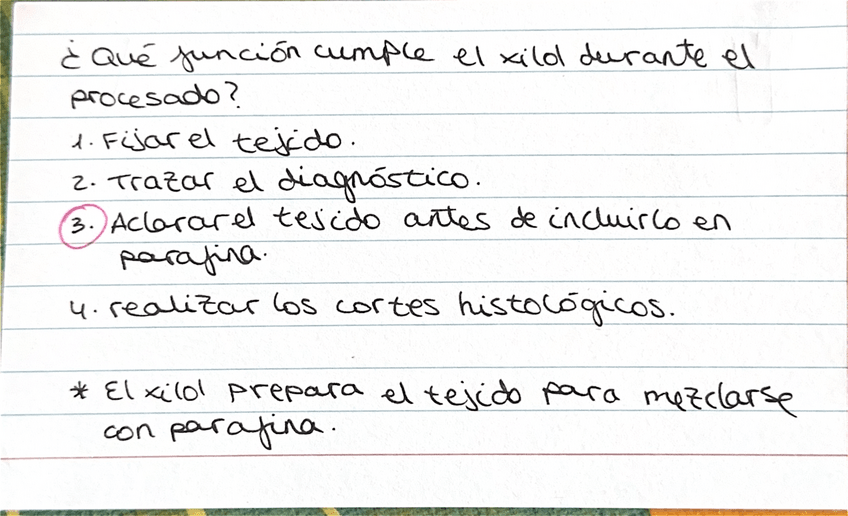 ¿Qué función cumple el xilol durante el
procesado?
1. Fijar el tejido.
2. Trazar el diagnóstico.
3. Aclarar el tejido antes de incluirlo en
parafina.
4. realizar los cortes histológicos.
* El xilol prepara el tejido para mezclarse
con parafina.